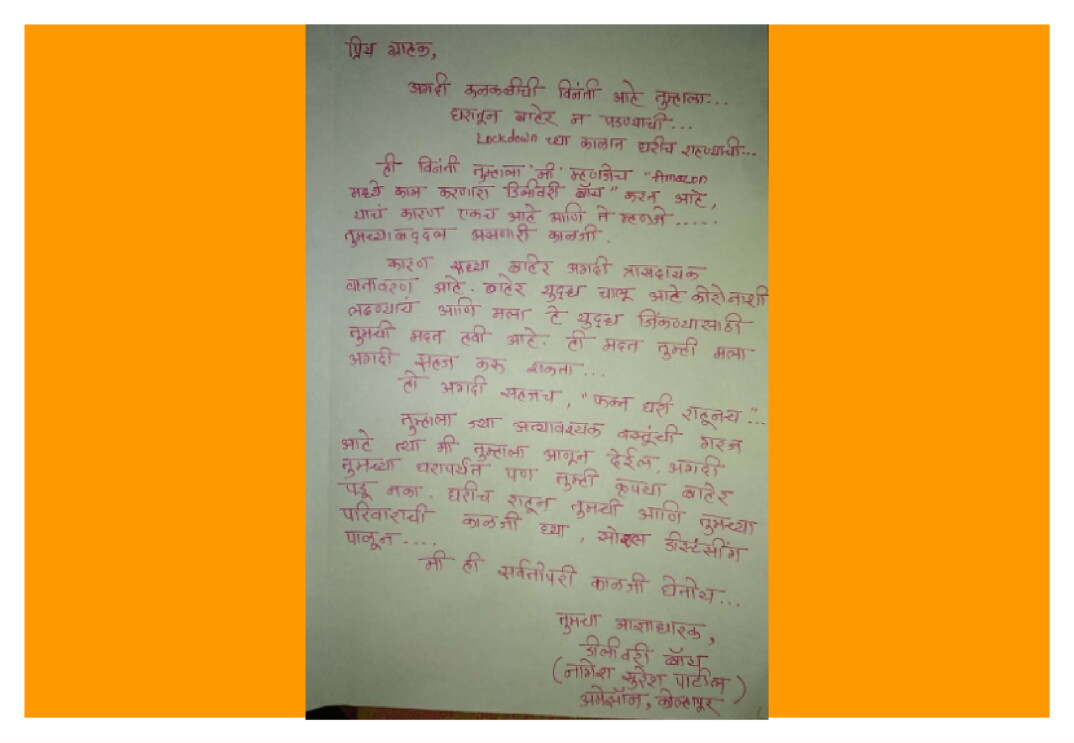 प्रिय ग्राहक,
अगदी कळकळीची विनंती आहे तुम्हाला...
घरातून बाहेर न पडण्याची...
Lockdown च्या काळात घरीच राहण्याची...
ही विनंती तुम्हाला 'मी' म्हणजेच "Amazon
मध्ये काम करणारा डिलीवरी बॉय" करत आहे,
याचं कारण एकच आहे आणि ते म्हणजे .....
तुमच्याबद्दल असणारी काळजी.
कारण सध्या बाहेर अगदी त्रासदायक
वातावरण आहे. बाहेर युद्ध चालू आहे कोरोनाशी
लढण्याचं आणि मला हे युद्ध जिंकण्यासाठी
तुमची मदत हवी आहे. ही मदत तुम्ही मला
अगदी सहज करू शकता...
हो अगदी सहजच, "फक्त घरी राहूनच"...
तुम्हाला ज्या अत्यावश्यक वस्तूंची गरज
आहे त्या मी तुम्हाला आणून देईल, अगदी
तुमच्या घरापर्यंत पण तुम्ही कृपया बाहेर
पडू नका. घरीच राहून तुमची आणि तुमच्या
परिवाराची काळजी घ्या, सोशल डीस्टंसींग
पाळून ....
मी ही सर्वतोपरी काळजी घेतोय...
तुमचा आज्ञाधारक,
डीलीवरी बॉय
(नागेश सुरेश पाटील)
अमेझॉन, कोल्हापूर